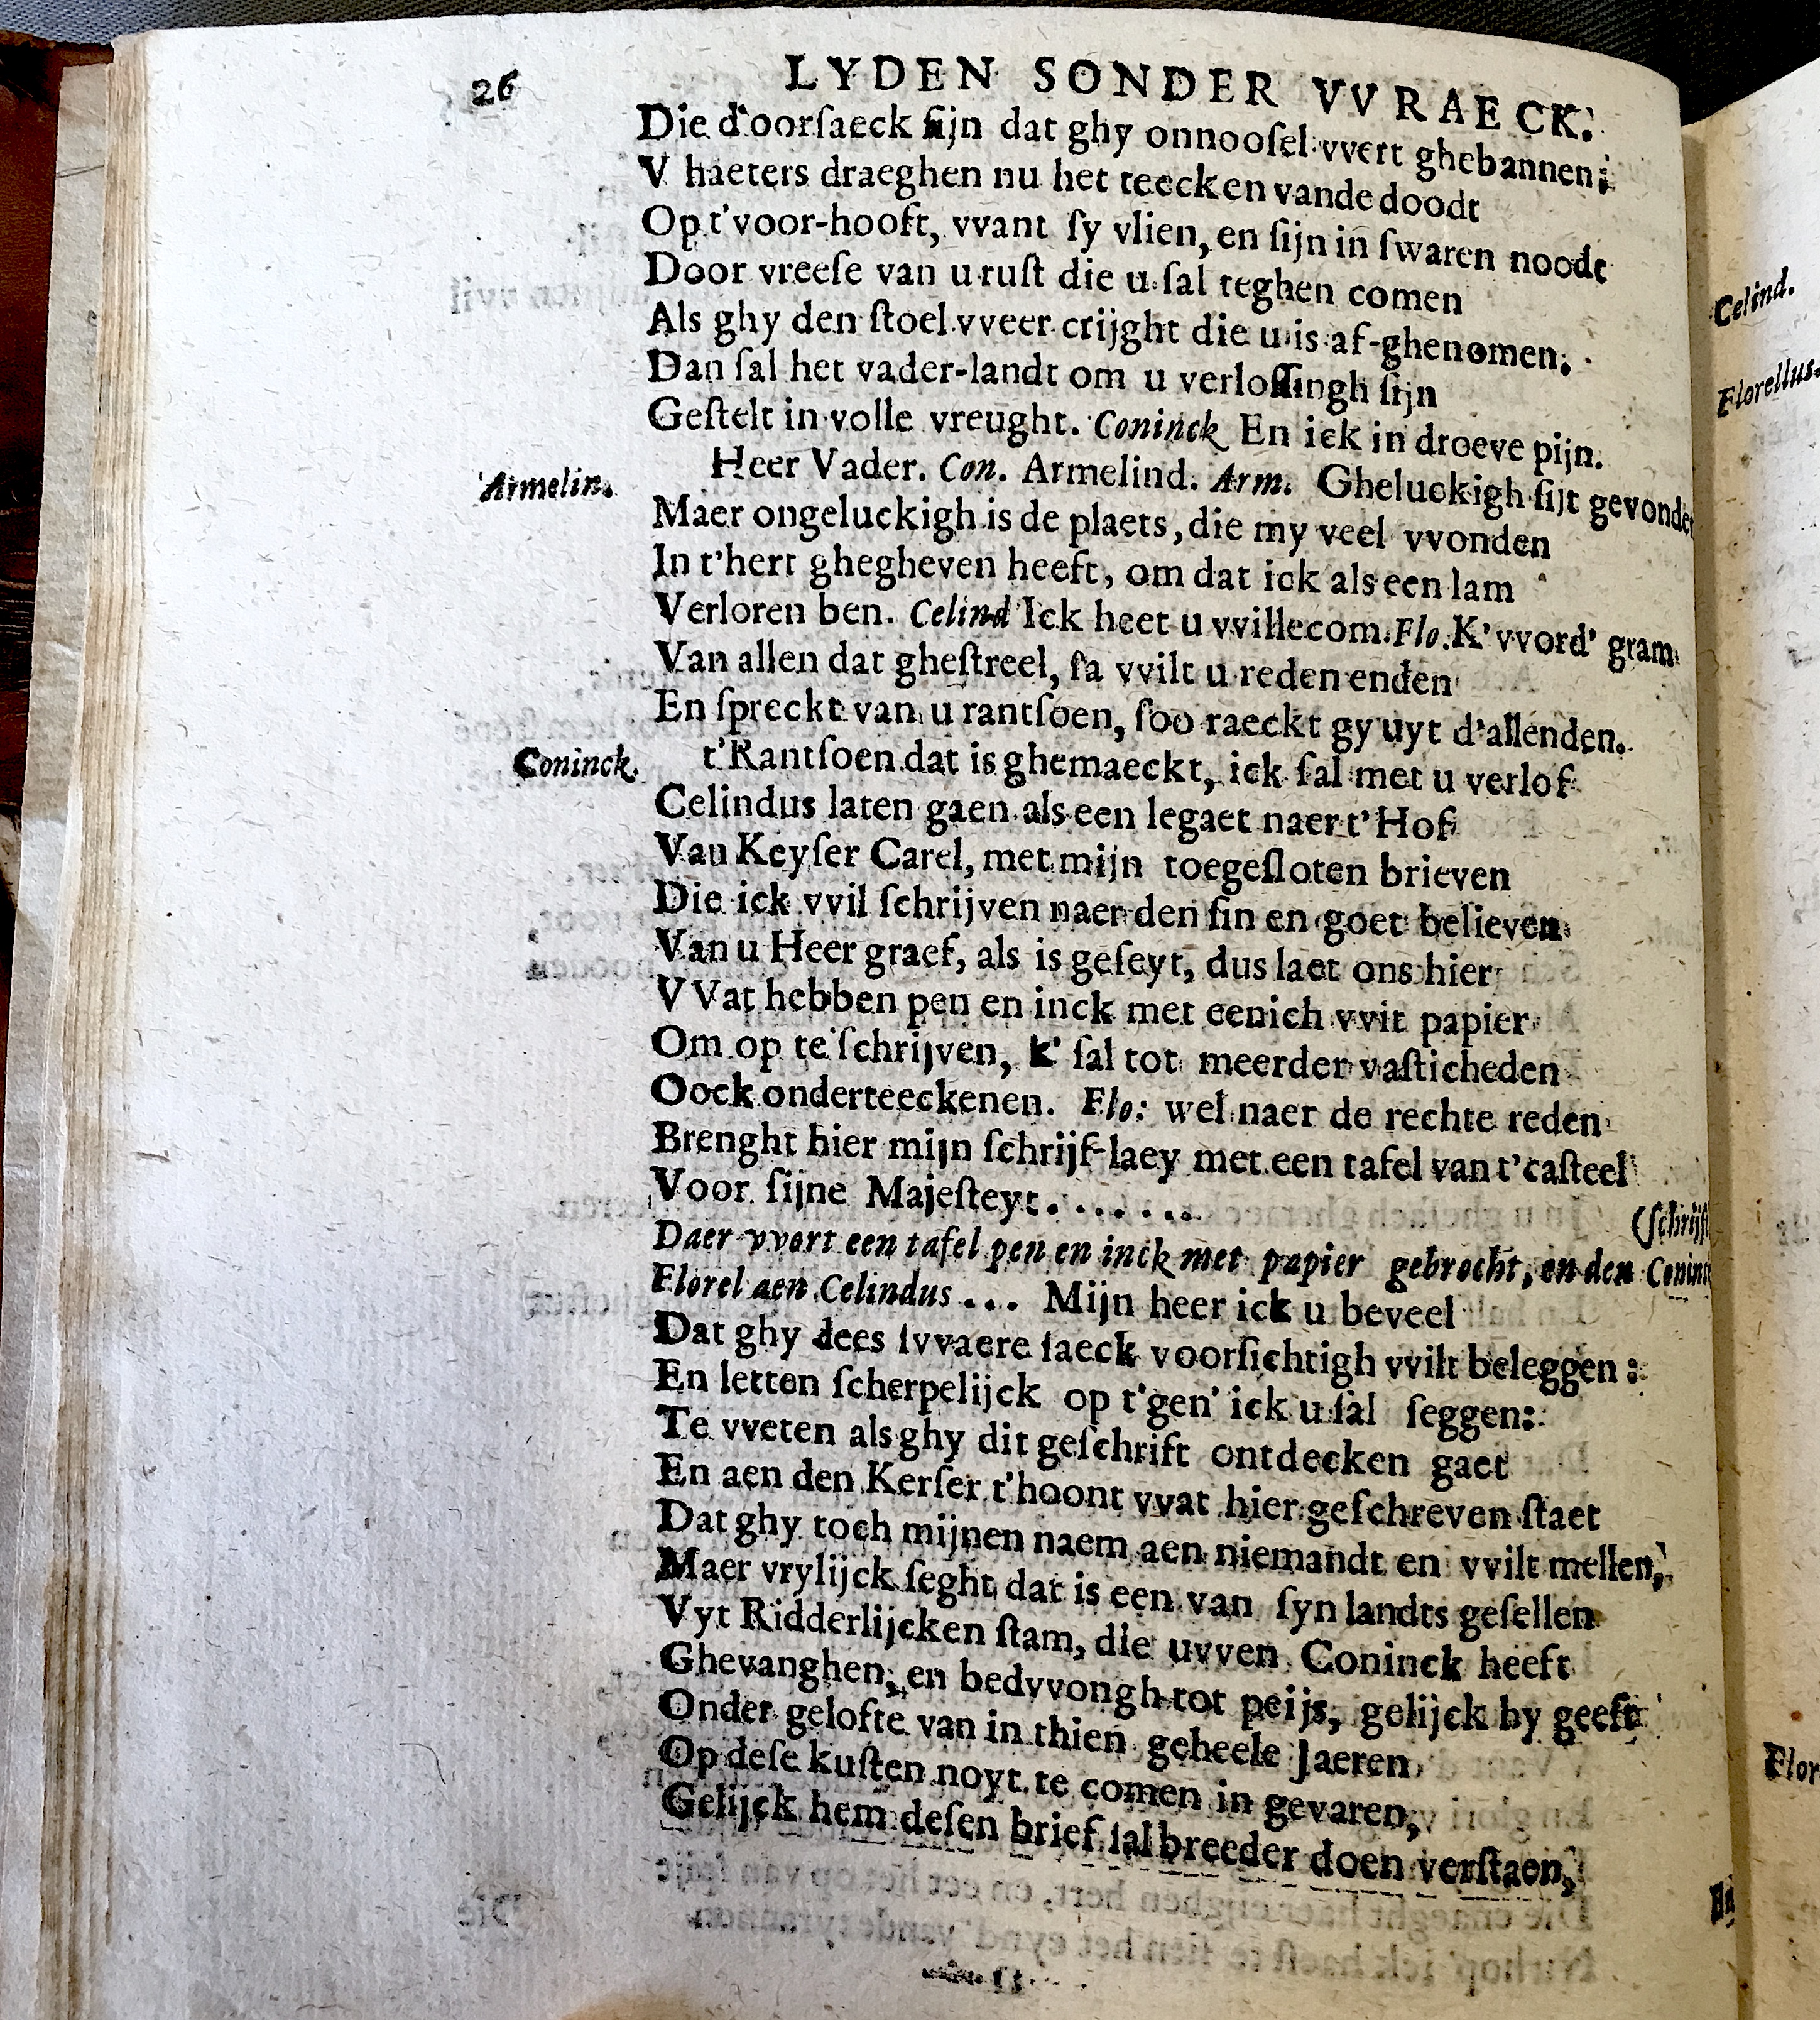 26 LYDEN SONDER VVRAECK.
Die d'oorſaeck ſijn dat ghy onnooſel vvert ghebannen;
V haeters draeghen nu het teecken vande doodt
Op t'voor-hooft, vvant ſy vlien, en ſijn in ſwaren noodt
Door vreeſe van u ruſt die u ſal teghen comen
Als ghy den ſtoel vveer crijght die u is af-ghenomen.
Dan ſal het vader-landt om u verloſſingh ſijn
Geſtelt in volle vreught. Coninck En ick in droeve pijn.
Armelin. Heer Vader. Con. Armelind. Arm. Gheluckigh ſijt gevonden
Maer ongeluckigh is de plaets, die my veel vvonden
In t'hert ghegheven heeft, om dat ick als een lam
Verloren ben. Celind Ick heet u vvillecom. Flo. K'vvord' gram
Van allen dat gheſtreel, ſa vvilt u reden enden
En ſpreckt van u rantſoen, ſoo raeckt gy uyt d'allenden.
Coninck. t'Rantſoen dat is ghemaeckt, ick ſal met u verlof
Celindus laten gaen als een legaet naer t'Hof
Van Keyſer Carel, met mijn toegeſloten brieven
Die ick vvil ſchrijven naer den ſin en goet believen
Van u Heer graef, als is geſeyt, dus laet ons hier
VVat hebben pen en inck met eenich vvit papier
Om op te ſchrijven, k' ſal tot meerder vaſticheden
Oock onderteeckenen. Flo: wel naer de rechte reden
Brenght hier mijn ſchrijf-laey met een tafel van t'caſteel
Voor ſijne Majeſteyt. . . . . . .
(ſchrijft
Daer vvort een tafel pen en inck met papier gebrocht, en den Coninck
Florel aen Celindus . . . Mijn heer ick u beveel
Dat ghy dees ſvvaere ſaeck voorſichtigh vvilt beleggen:
En letten ſcherpelijck op t'gen' ick u ſal ſeggen:
Te vveten als ghy dit geſchrift ontdecken gaet
En aen den Kerſer t'hoont vvat hier geſchreven ſtaet
Dat ghy toch mijnen naem aen niemandt en vvilt mellen,
Maer vrylijck ſeght dat is een van ſyn landts geſellen
Vyt Ridderlijcken ſtam, die uvven Coninck heeft
Ghevanghen, en bedvvongh tot peijs, gelijck hy geeft
Onder gelofte van in thien geheele Jaeren
Op deſe kuſten noyt te comen in gevaren,
Gelijck hem deſen brief ſal breeder doen verſtaen,
Celind.
Florellus.
Flor